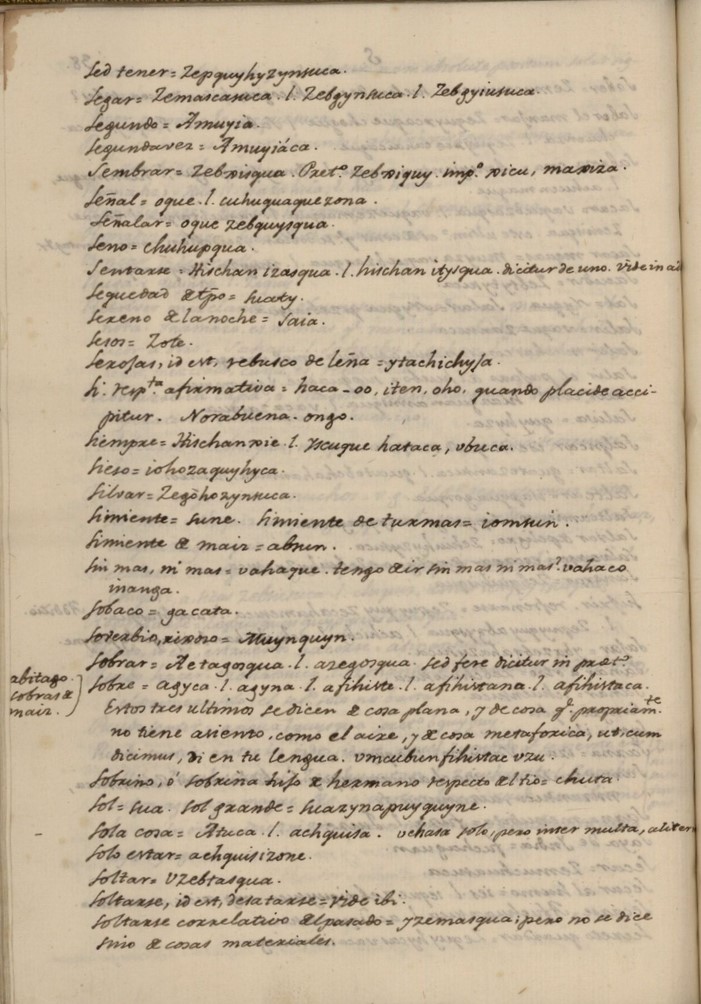 Sed tener = Zepquyhyzynsuca.
Segar = Zemascasuca . l . Zebgynsuca . l . Zebgyiusuca.
Segundo = Amuyia.
Segundavez = Amuyiáca.
Sembrar = Zebxisqua . Pret.º Zebxiquy . imp.º xicu, maxiza.
Señal = oque . l . cuhuquaquezona.
Señalar = oque zebquysqua.
Seno = chuhupqua.
Sentarse = Hischan izasqua . l . hischan itysqua . dicitur de uno. vide in
Sequedad de tpõ = suaty.
Sereno de la noche = saia.
Sesos = Zote.
Serojas, id est, rebusco de leña = ytachichysa.
Si . resp.ta afirmativa = haca - oo, iten, oho, quando placide acci-
pitur. Norabuena . ongo.
Siempre = Hischanxie . l . yscuque hataca, vbuca.
Sieso = iohozaquyhyca.
Silvar = Zegõhozynsuca.
Simiente = sune. Simiente de turmas = iomsun.
Simiente de maiz = absun.
Sin mas, ni mas = vahaque. tengo de ir sin mas ni mas? vahaco
inanga.
Sobaco = gacata.
Soverbio, rixoso = Muynquyn.
Sobrar = Aetagosqua . l . azegosqua. sed fere dicitur in præt.º
abitago.
sobras de
maiz.
Sobre = agyca . l . agyna . l . afihiste . l . afihistana . l . afihistaca.
Estos tres ultimos se dicen de cosa plana, y de cosa q.e propriam.te
no tiene asiento, como el aire, y de cosa metaforica, ut cum
dicimus, Di en tu lengua. vmcubunfihistac vzu.
Sobrino, ó sobrina hijo de hermano respecto del tio = chuta.
Sol = sua. Sol grande = suazynapuyquyne.
Sola cosa = Atuca . l . achquisa. vchasa solo, pero inter multa, aliter
Solo estar = achquisizone.
Soltar = Vzebtasqua.
Soltarse, id est, desatarse = vide ibi.
Soltarse correlativo del pasado = yzemasqua; pero no se dice
sino de cosas materiales.